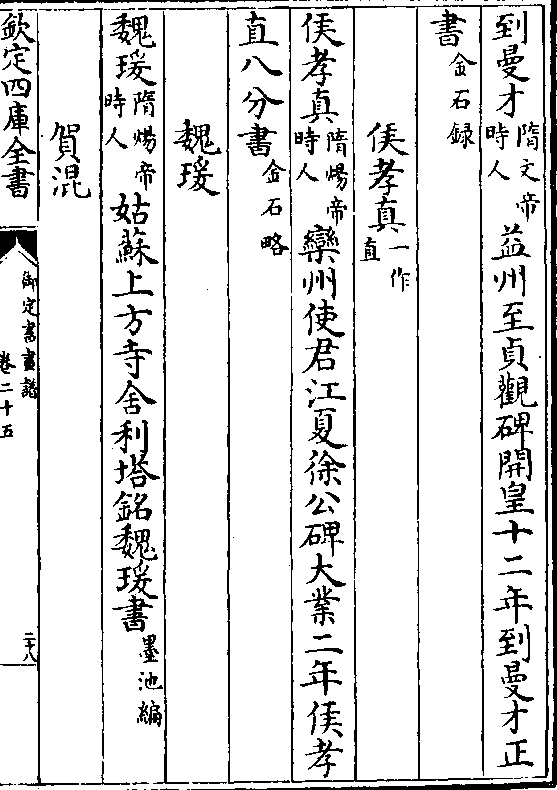 到曼才隋文帝時人益州至貞觀碑開皇十二年到曼才正
書金石録
侯孝真一作直
侯孝真隋煬帝時人欒州使君江夏徐公碑大業二年侯孝
直八分書金石略
魏瑗
魏瑗隋煬帝時人姑蘇上方寺舍利塔銘魏瑗書墨池編
賀混
欽定四庫全書
御定書畫譜
卷二十五
二十八